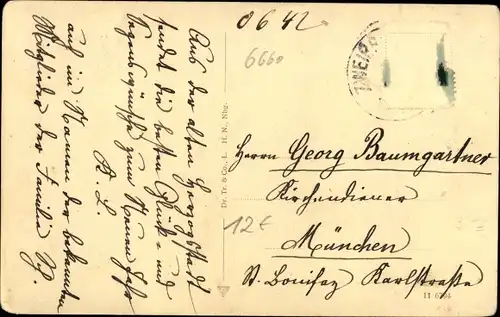 Aus der alten Herzogstadt
sendet die besten Glück- und
Segenswünsche zum Neuen Jahr
K. L.
auch im Namen der bekannten
Mitglieder der Familie
0642
6660
Dr. Tr. & Co., L. H. N., Nbg.
Herrn Georg Baumgartner
Kirchendiener
12€
München
St. Bonifaz Karlstraße